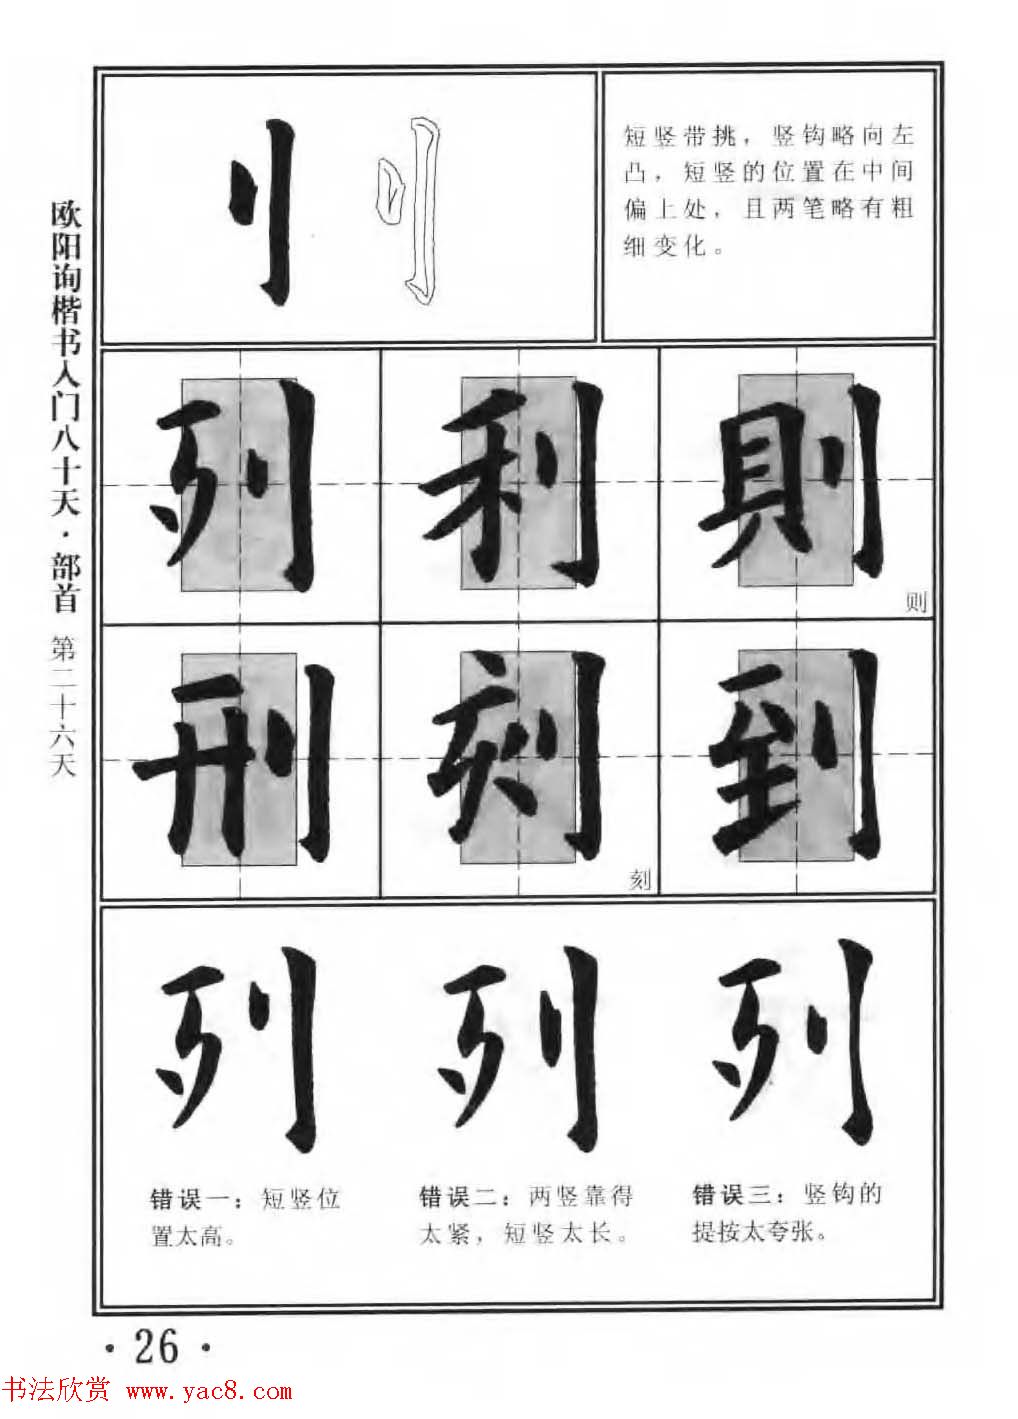 欧阳询楷书入门八十天·部首 第二十六天
刂
短竖带挑，竖钩略向左
凸，短竖的位置在中间
偏上处，且两笔略有粗
细变化。
列 利 則
则
刑 刻 到
刻
列 列 列
错误一：短竖位
置太高。
错误二：两竖靠得
太紧，短竖太长。
错误三：竖钩的
提按太夸张。
·26·
书法欣赏 www.yac8.com